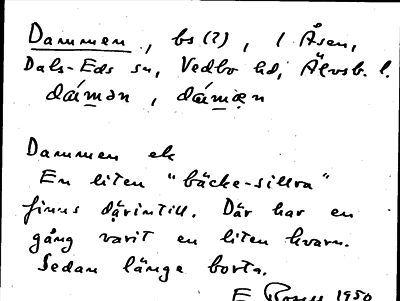 Dammen, bs(?), 1 Åsen,
Dals-Eds sn, Vedbo hd, Älvsb. l.
dám̲ən, dám̲æn
Dammen ek
En liten "bäcke-sillra"
finns därintill. Där har en
gång varit en liten kvarn.
Sedan länge borta.
E 1950